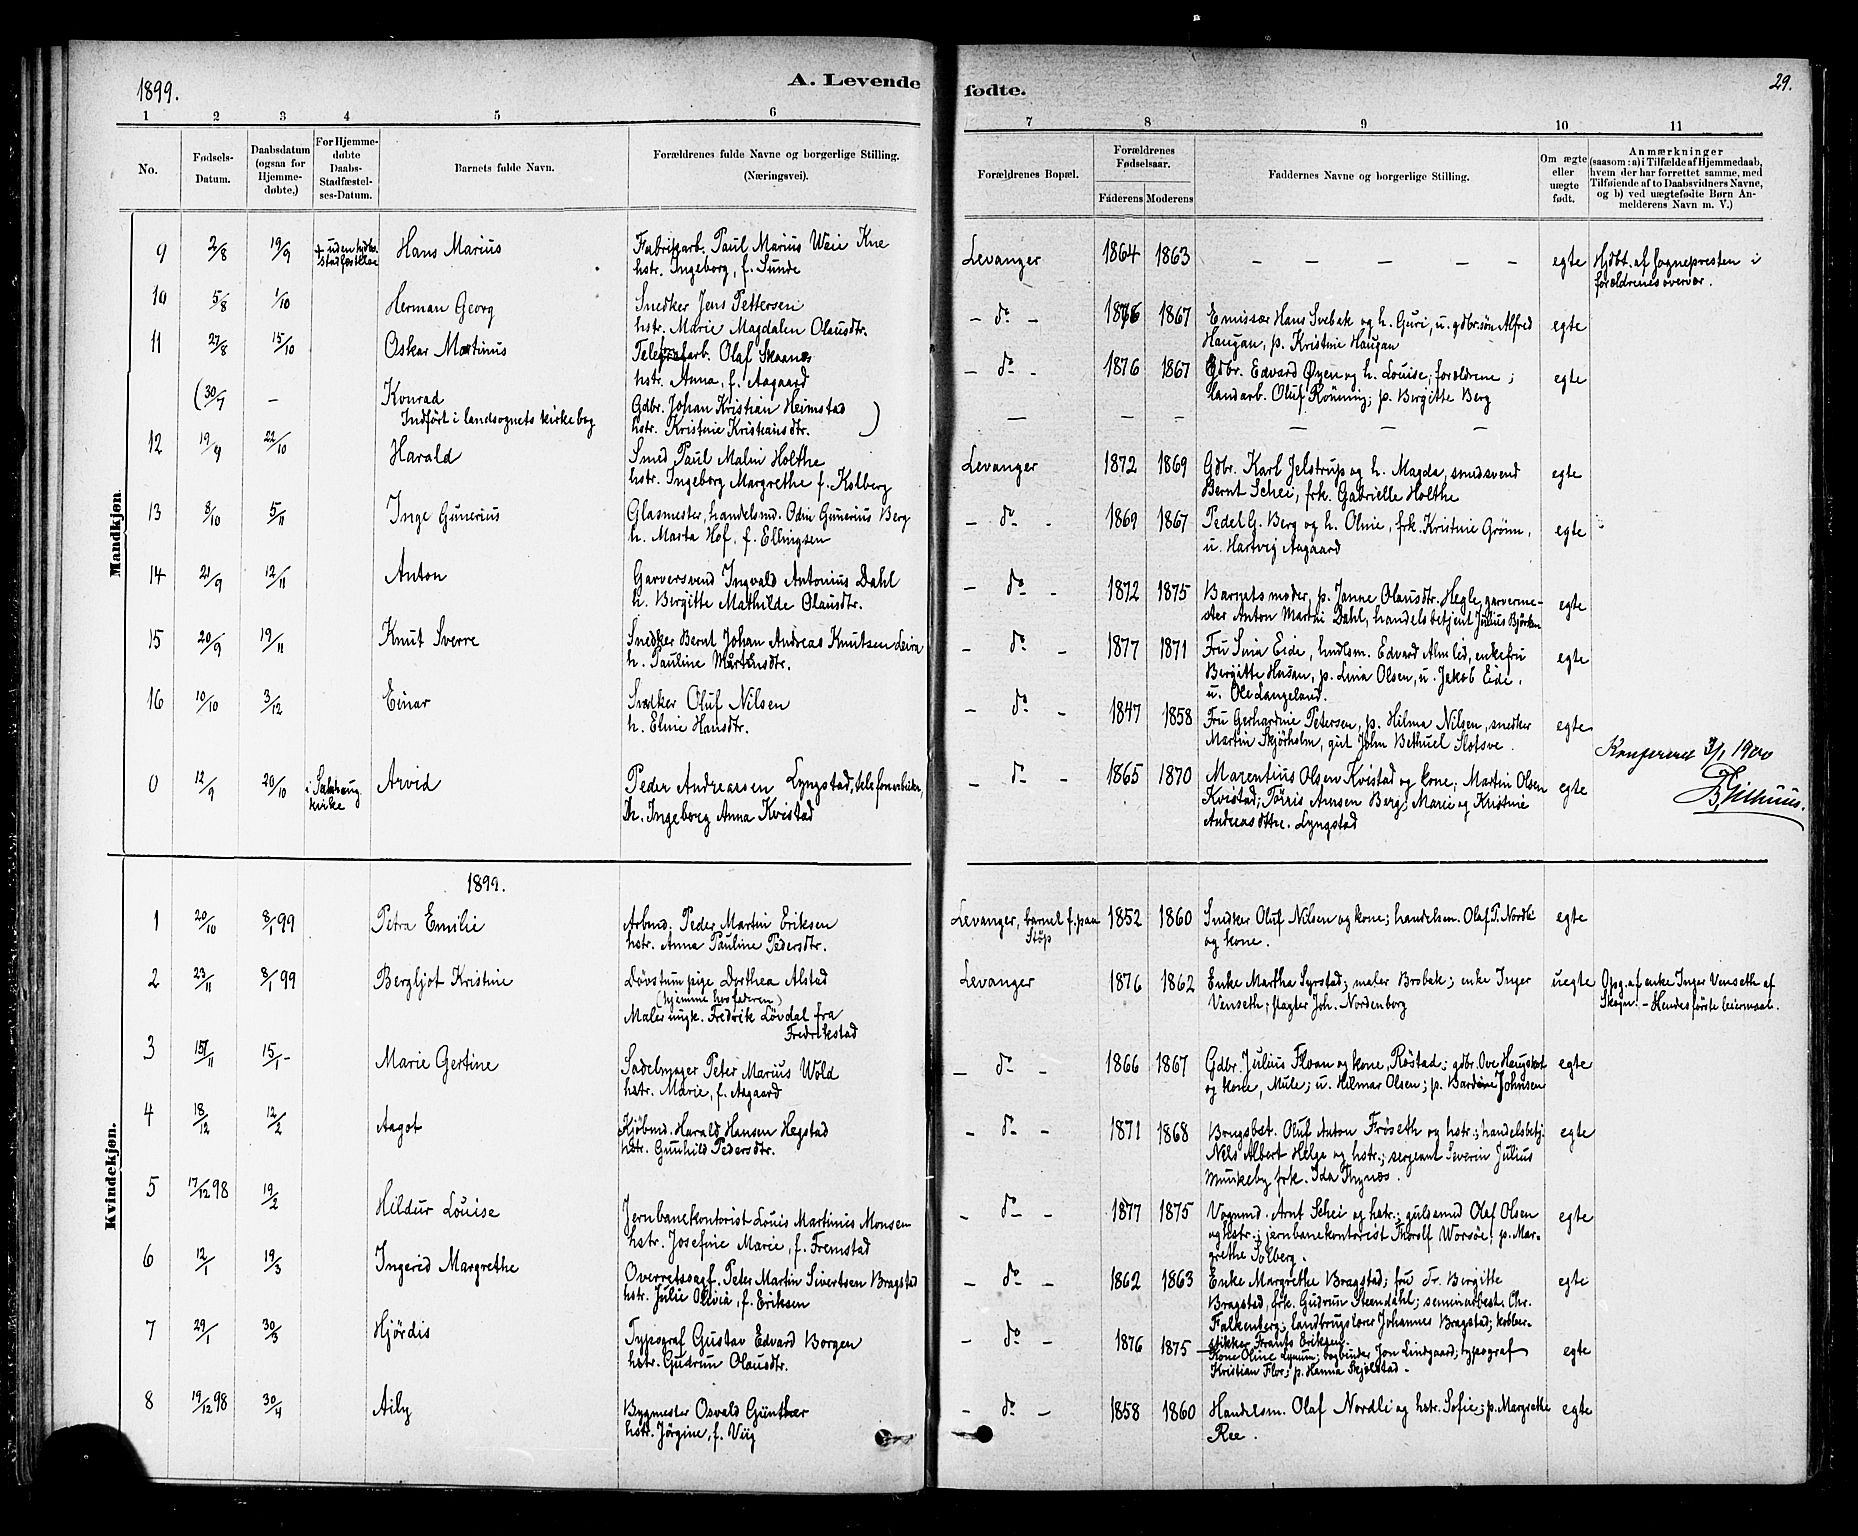 1899.
A. Levende
fødte.
29.
1 2 3 4 5 6 7 8 9 10 11
No.
Fødsels-
Datum.
Daabsdatum
(ogsaa for
Hjemme-
døbte.)
For Hjemme-
døbte
Daabs-
Stadfæstel-
ses-Datum.
Barnets fulde Navn.
Forældrenes fulde Navne og borgerlige Stilling.
(Næringsvei).
Forældrenes Bopæl.
Forældrenes
Fødselsaar.
Faderens Moderens
Faddernes Navne og borgerlige Stilling.
Om ægte
eller
uægte
født.
Anmærkninger
(saasom: a) i Tilfælde af Hjemmedaab,
hvem der har forrettet samme, med
Tilføiende af to Daabsvidners Navne,
og b) ved uægtefødte Børn An-
melderens Navn m. V.)
Mandkjøn.
9 2/8 19/9 Hans Marius Fabrikarb. Paul Marius Weie Kne Levanger 1864 1863 — — — — — egte Hjdbt. af sognepresten i
hstr. Ingeborg, f. Sunde forældrenes overvær.
10 5/8 1/10 Herman Georg Snedker Jens Pettersen - do - 1876 1867 Emissær Hans Svebak og h. Guri, u. gdbr.søn Alfred egte
hstr. Marie Magdalen Olausdtr. Haugan, p. Kristine Haugan
11 27/8 15/10 Oskar Martinus Telegrafarb. Olaf Skaanes - do - 1876 1867 Gdbr. Edvard Øyen og h. Louise, forældrene; egte
hstr. Anna, f. Aagaard landarb. Oluf Rönning; p. Birgitte Berg
(30/7 - Konrad Gdbr. Johan Kristian Heimstad ) — — — — — —
Indført i landsognets kirkebog hstr. Kristine Kristiansdtr.
12 19/9 22/10 Harald Smed Paul Malin Holthe Levanger 1872 1869 Gdbr. Karl Jelstrup og h. Magda, smedsvend egte
hstr. Ingeborg Margrethe f. Kolberg Bernt Schei, frk. Gabrielle Holthe
13 8/10 5/11 Inge Gunerius Glasmester, handelsmd. Odin Gunerius Berg - do - 1869 1867 Pedel G. Berg og h. Oline, frk. Kristine Grönn, egte
h. Marta Hof, f. Ellingsen u. Hartvig Aagaard
14 21/9 12/11 Anton Garversvend Ingvald Antonius Dahl - do - 1872 1875 Barnets moder, p. Janne Olausdtr. Hegle, garverme- egte
h. Bergitte Mathilde Olausdtr. ster Anton Martin Dahl, handelsbetjent Julius Björken
15 20/9 19/11 Knut Sverre Snedker Bernt Johan Andreas Knutsen Leira - do - 1877 1871 Fru Sina Eide, hndlsm. Edvard Almlid, enkefru egte
h. Pauline Mårtensdtr. Bergitte Hassan, p. Lina Olsen, u. Jakob Eide,
u. Ole Langeland.
16 10/10 3/12 Einar Snedker Oluf Nilsen - do - 1847 1858 Fru Gerhardine Petersen, p. Hilma Nilsen, snedker egte
h. Eline Hansdtr. Martin Skjörholm, gut John Bethuel Slotsve.
0 12/9 20/10 i Salthaug
kirke Arvid Peder Andreassen Lyngstad, telefonarbeider, - do - 1865 1870 Marentius Olsen Kvistad og kone; Martin Olsen egte
h. Ingeborg Anna Kvistad Kvistad; Törris Arnsen Berg; Marie og Kristine
Andreasdttre. Lyngstad
Konfereret 3/1 1900
Kvindekjøn.
1899.
1 20/10 8/1 99 Petra Emilie Arbmd. Peder Martin Eriksen Levanger, barnet f. paa 1852 1860 Snedker Oluf Nilsen og kone; handelsm. Olaf P. Nordli egte
hstr. Anna Pauline Pedersdtr. Støp og kone.
2 23/11 8/1 99 Bergljot Kristine Døvstum pige Dorthea Alstad Levanger 1876 1862 Enke Martha Syrstad; maler Brobak; enke Inger uegte Opg. af enke Inger Venseth af
(hjemme hos faderen) Venseth; pagter Joh. Nordenborg Skogn. - Hendes første leiermaal.
Maler ungk. Fredrik Lövdal fra
Fredrikstad
3 15/11 15/1 - Marie Gertine Sadelmager Peter Marius Wold - do - 1866 1867 Gdbr. Julius Floan og kone, Röstad; gdbr. Ove Haugskot egte
hstr. Marie, f. Aagaard og kone, Mule; u. Hilmar Olsen; p. Bardine Johnsen
4 18/12 12/2 Aagot Kjöbmd. Harald Hansen Hegstad - do - 1871 1868 Brugsbst. Oluf Anton Fröseth og hstr.; handelsbetj. egte
hstr. Gunhild Pedersdtr. Nils Albert Helge og hstr.; sergeant Severin Julius
Munkeby frk. Ida Thynæs.
5 17/12 98 19/2 Hildur Louise Jernbanekontorist Louis Martinius Monsen - do - 1877 1875 Vognmd. Arnt Schei og hstr.; gulsmed Olaf Olsen egte
hstr. Josefine Marie, f. Fremstad og hstr.; jernbanekontorist Thorolf Worsöe; p. Mar-
grethe Solberg.
6 12/1 19/3 Ingerid Margrethe Overretssagf. Peter Martin Sivertsen Bragstad - do - 1862 1863 Enke Margrethe Bragstad; fru Fr. Bergitte egte
hstr. Julie Olivia, f. Eriksen Bragstad, frk. Gudrun Steendahl; seminarbest. Chr.
Falkenberg; landbrugslærer Johannes Bragstad; kobber-
stikker Frants Eriksen.
7 29/1 30/3 Hjördis Typograf Gustav Edvard Borgen - do - 1876 1875 Kone Oline Lynum; bogbinder Jon Lindgaard; typograf egte
hstr. Gudrun Olausdtr. Kristian Flor; p. Hanna Skjölstad.
8 19/12 98 30/4 Aily Bygmester Osvald Günther - do - 1858 1860 Handelsm. Olaf Nordli og hstr. Sofie; p. Margrethe egte
hstr. Jörgine, f. Viig Ree.